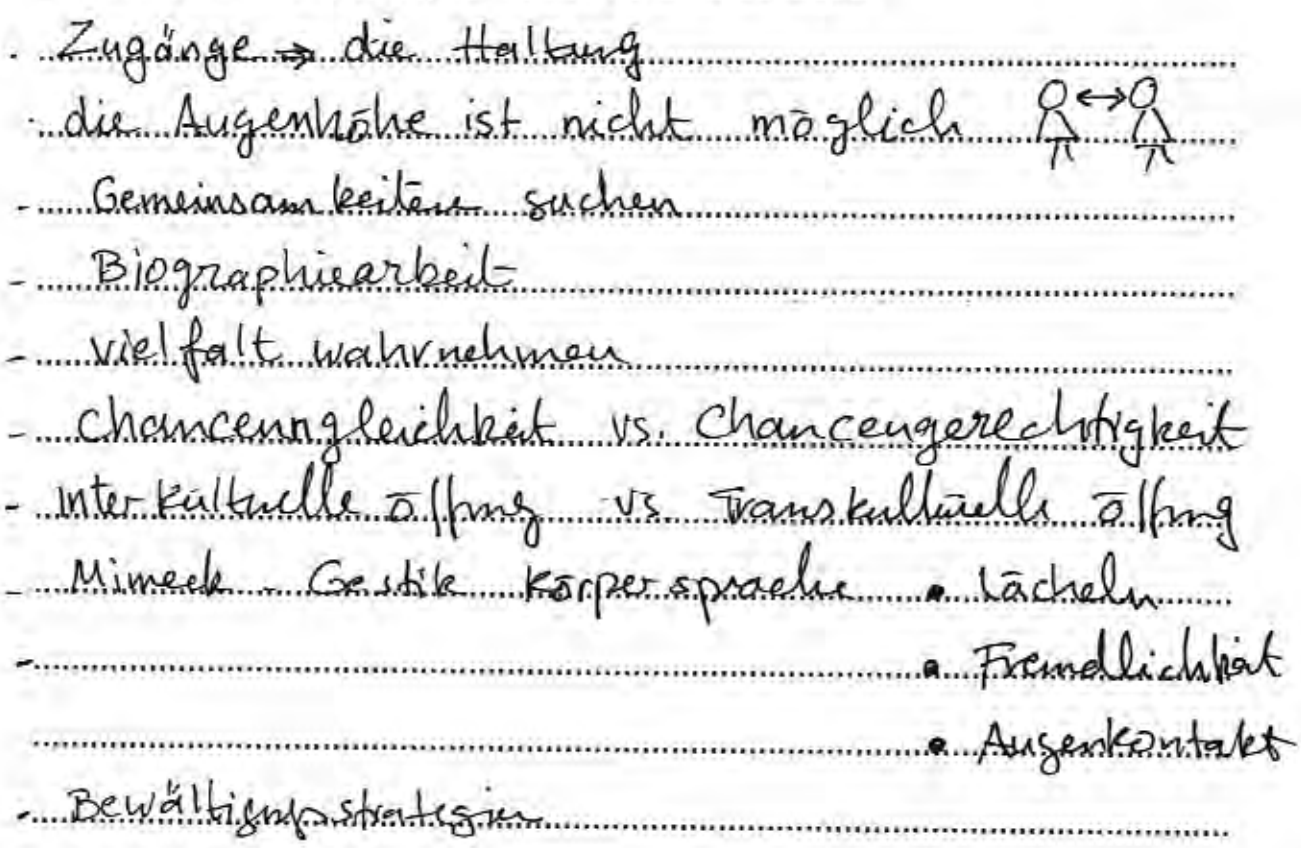 · Zugänge ⇒ die Haltung
· die Augenhöhe ist nicht möglich ↔
- Gemeinsamkeiten suchen
- Biographiearbeit
- Vielfalt wahrnehmen
- Chancenngleichkeit vs. Chancengerechtigkeit
- Interkulturelle Öffnung vs Transkulturelle Öffnung
- Mimeek - Gestik Körpersprache • Lächeln
- • Freundlichkeit
• Augenkontakt
- Bewältigungsstrategien